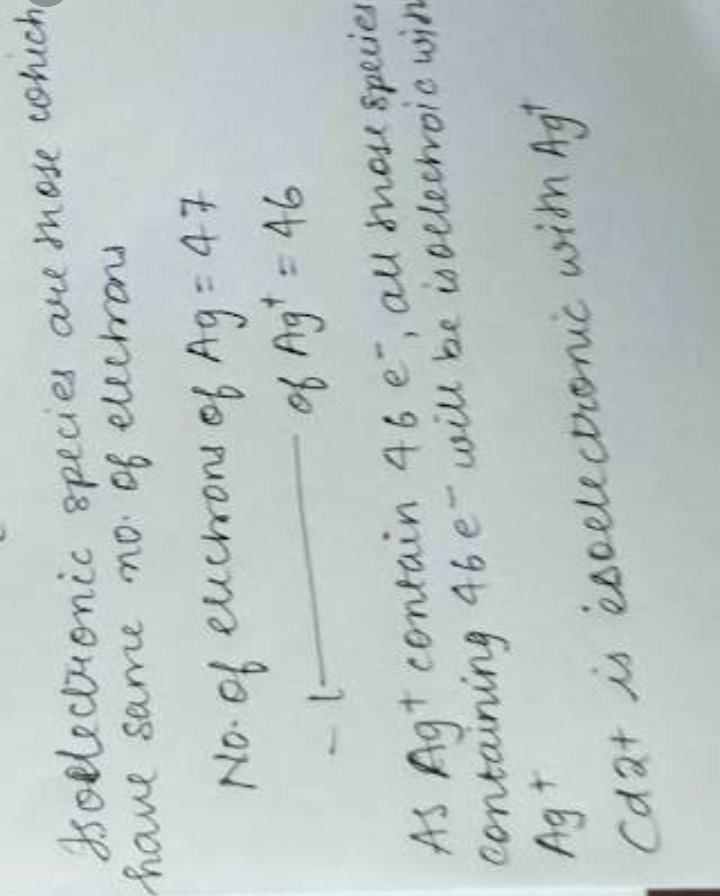 Isoelectronic species are those which
have same no. of electrons
No. of electrons of Ag = 47
of Ag⁺ = 46
As Ag⁺ contain 46 e⁻, all those species
containing 46 e⁻ will be isoelectroic with
Ag⁺
Cd2+ is isoelectronic with Ag⁺